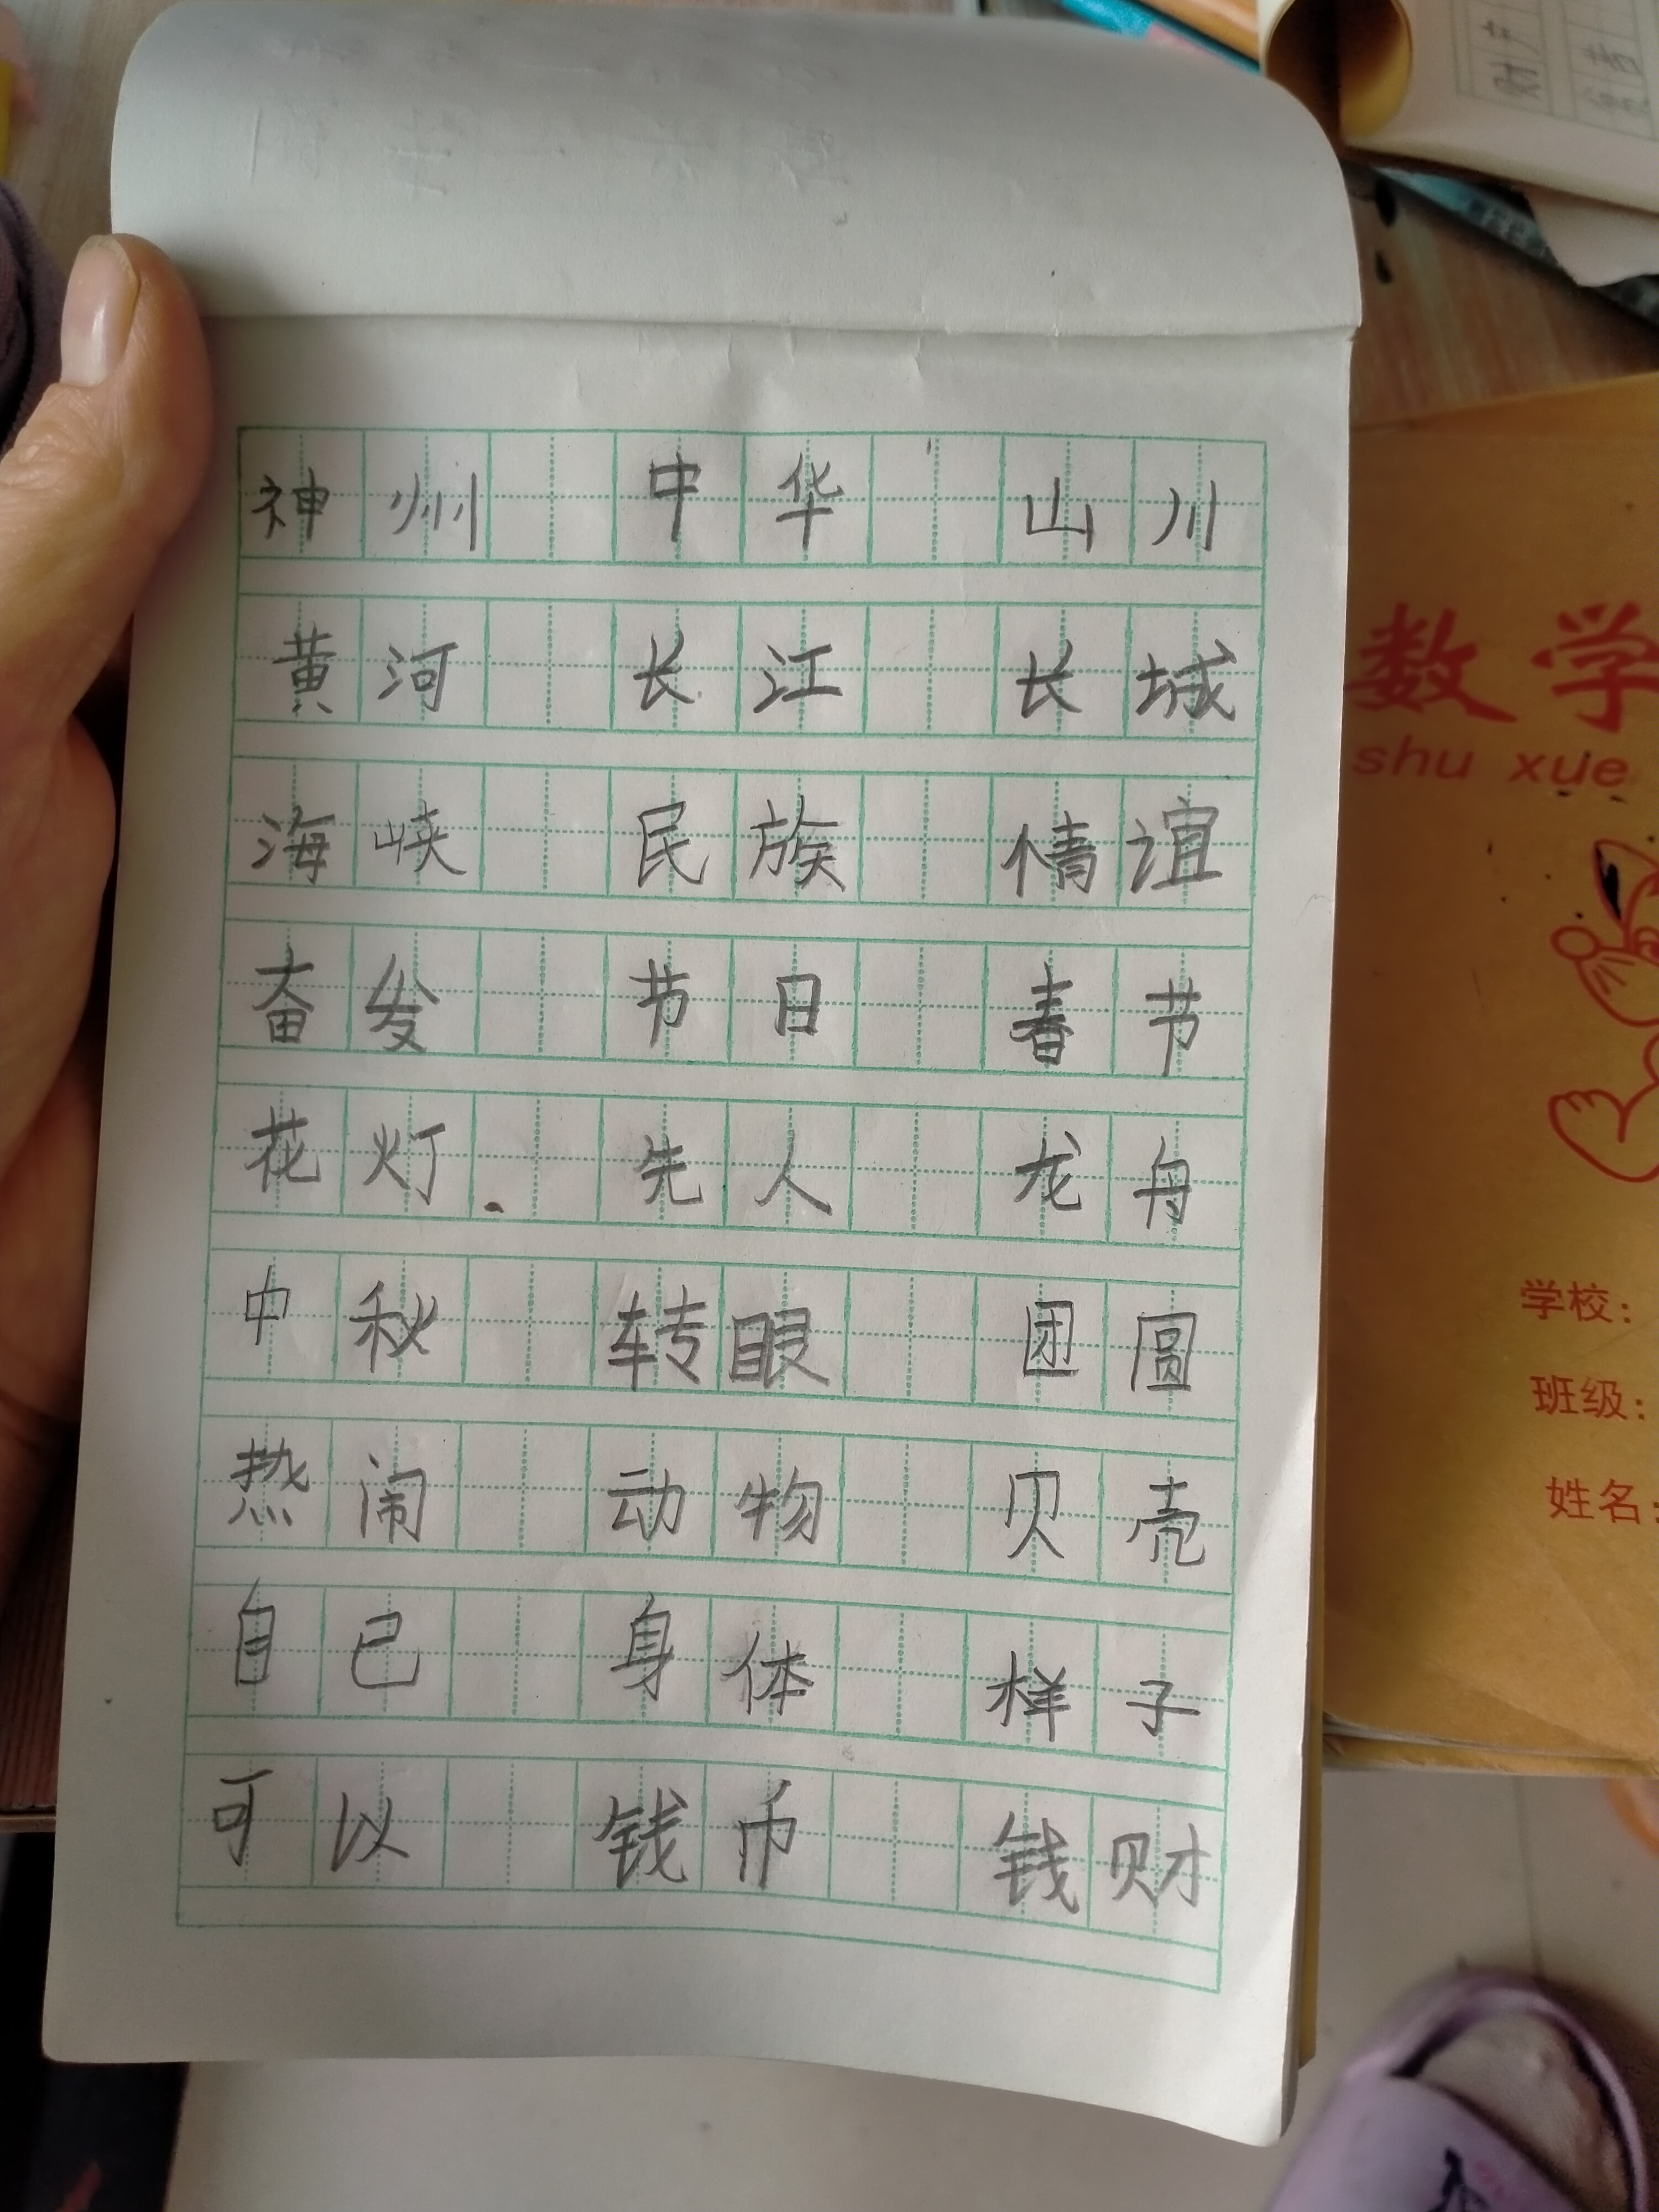 神州 中华 山川
黄河 长江 长城
海峡 民族 情谊
奋发 节日 春节
花灯 先人 龙舟
中秋 转眼 团圆
热闹 动物 贝壳
自己 身体 样子
可以 钱币 钱财
数学
shu xue
学校：
班级：
姓名：